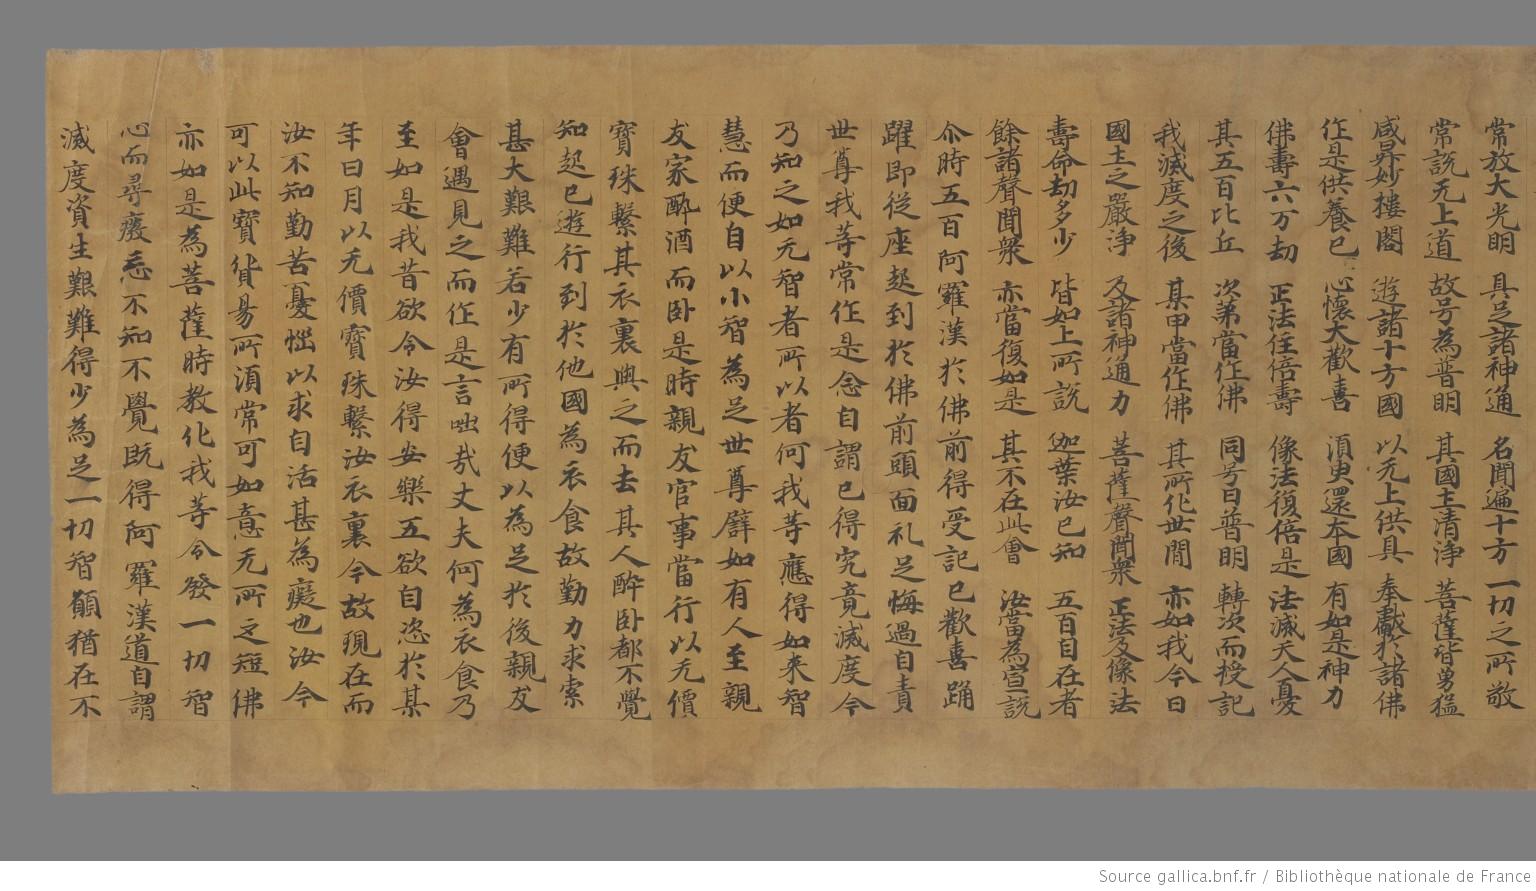 常放大光明　具足諸神通　名聞遍十方　一切之所敬
常說无上道　故号為普明　其國土清淨　菩薩皆勇猛
咸昇妙樓閣　遊諸十方國　以无上供具　奉獻於諸佛
作是供養已　心懷大歡喜　湏臾還本國　有如是神力
佛壽六万劫　正法住倍壽　像法復倍是　法滅天人憂
其五百比丘　次第當作佛　同号曰普明　轉次而授記
我滅度之後　某甲當作佛　其所化世間　亦如我今日
國土之嚴淨　及諸神通力　菩薩聲聞衆　正法及像法
壽命劫多少　皆如上所說　迦葉汝已知　五百自在者
餘諸聲聞衆　亦當復如是　其不在此會　汝當為宣說
尒時五百阿羅漢於佛前得受記已歡喜踊
躍即從座起到於佛前頭面礼足悔過自責
世尊我等常作是念自謂已得究竟滅度今
乃知之如无智者所以者何我等應得如来智
慧而便自以小智為足世尊譬如有人至親
友家醉酒而卧是時親友官事當行以无價
寳珠繫其衣裏與之而去其人醉卧都不覺
知起已遊行到於他國為衣食故勤力求索
甚大艱難若少有所得便以為足於後親友
會遇見之而作是言咄㢤丈夫何為衣食乃
至如是我昔欲令汝得安樂五欲自恣於某
年日月以无價寳珠繫汝衣裏今故現在而
汝不知勤苦憂惱以求自活甚為癡也汝今
可以此寳貨易所湏常可如意无所乏短佛
亦如是為菩薩時教化我等令發一切智
心而尋癈忘不知不覺既得阿羅漢道自謂
滅度資生艱難得少為足一切智願猶在不
Source gallica.bnf.fr / Bibliothèque nationale de France